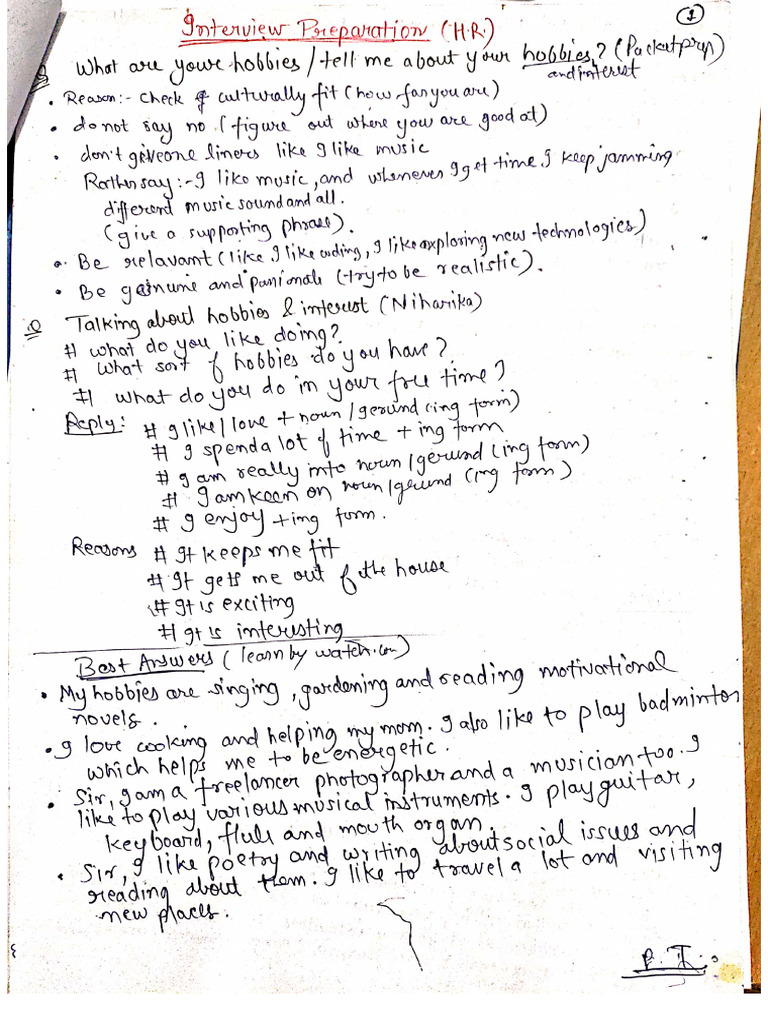 1
Interview Preparation (H.R)
Q What are youre hobbies / tell me about your hobbies? (Packetprep)
and interest
• Reason:- check of culturally fit (how far you are)
• do not say no (figure out where you are good at)
• don't give one liners like I like music
Rather say:- I like music, and whenever I get time I keep jamming
different music sound and all.
(give a supporting phrase).
• Be relavant (like I like coding, I like exploring new technologies)
• Be genuine and passionate (try to be realistic).
Q Talking about hobbies & interest (Niharika)
# what do you like doing?
# what sort of hobbies do you have?
# what do you do in your free time?
Reply: # I like/love + noun/gerund (ing form)
# I spend a lot of time + ing form
# I am really into noun/gerund (ing form)
# I am keen on noun/gerund (ing form)
# I enjoy + ing form.
Reasons # It keeps me fit
# It gets me out of the house
# It is exciting
# It is interesting
Best Answers (learn by watch.com)
• My hobbies are singing, gardening and reading motivational
novels.
• I love cooking and helping my mom. I also like to play badminton
which helps me to be energetic.
• Sir, I am a freelancer photographer and a musician too. I
like to play various musical instruments. I play guitar,
keyboard, flute and mouth organ.
• Sir, I like poetry and writing about social issues and
reading about them. I like to travel a lot and visiting
new places.
P.T.